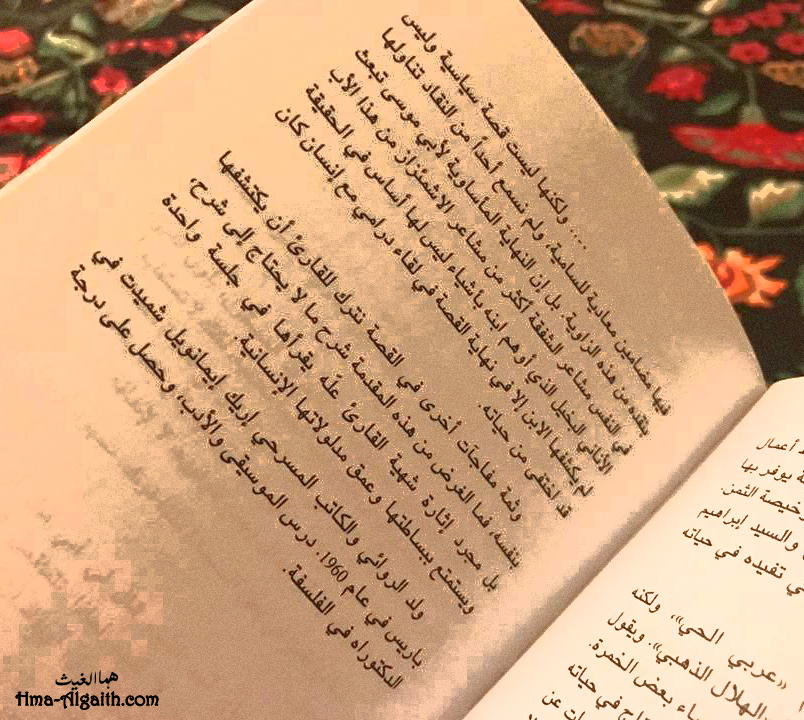 .... ولكنها ليست قصة سياسية وليس
فيها مضامين معادية للسامية، ولم نسمع أحداً من النقاد تناولها
بنقده من هذه الزاوية. بل إن النهاية المأساوية لأبي موسى تبعث
في النفس مشاعر الشفقة أكثر من مشاعر الاشمئزاز من هذا الأب
الأناني البخيل الذي أوهم ابنه بأشياء ليس لها أساس في الحقيقة
لم يكتشفها الابن إلا في نهاية القصة في لقاء درامي مع إنسان كان
قد اختفى من حياته.
وثمة مفاجآت أخرى في القصة نترك للقارئ أن يكتشفها
بنفسه، فما الغرض من هذه المقدمة شرح ما لا يحتاج إلى شرح،
بل مجرد إثارة شهية القارئ علّه يقرأها في جلسة واحدة
ويستمتع ببساطتها وعمق مدلولاتها الإنسانية.
ولد الروائي والكاتب المسرحي إريك إيمانويل شميدت في
باريس في عام 1960. درس الموسيقى والأدب، وحصل على درجة
الدكتوراه في الفلسفة.
أعمال
يوفر بها
رخيصة الثمن.
والسيد إبراهيم
تقيده في حياته
«عربي الحي»، ولكنه
الهلال الذهبي». ويقول
بعض الخمرة.
في حياته
عن
هماالغيث
Hma-Algaith.com